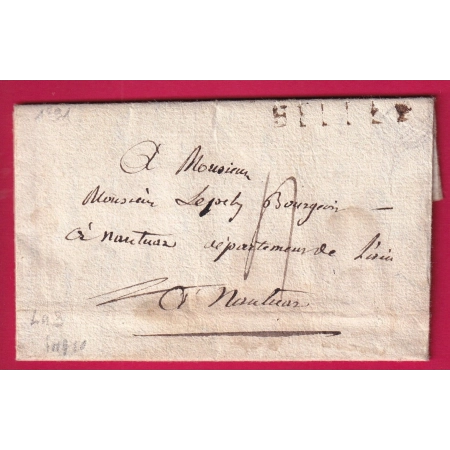 1791
BELLEY
A Monsieur
Monsieur Bourgeois
à nantua département de l'ain
A Nantua